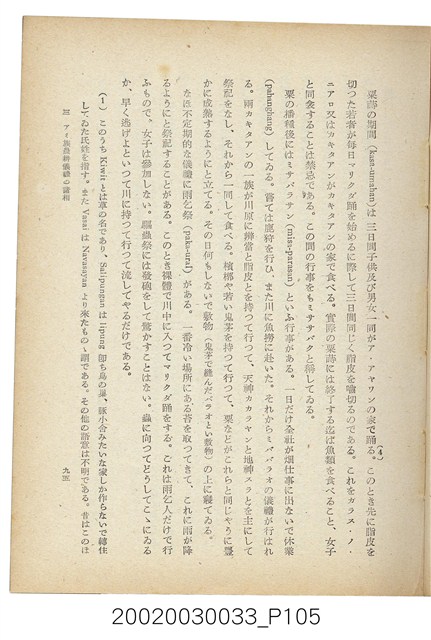 粟蒔の期間 (kasa-umahan) は三日間子供及び男女一同がア・アヤワンの家で踊る。このとき先に脂皮を
切つた若者が毎日マリクダ踊を始めるに際して三日間同じく脂皮を嚙切るのである。これをカラス・ノ・
ニアロ又はカキタアンがカキタアンの家で食べる。實際の粟蒔には終了する迄は魚類を食べること、女子
と同衾することは禁忌である。この間の行事をもミササバクと稱してゐる。
粟の播種後にはミサパラサン (misa-parasan) といふ行事がある。一日だけ全社が畑仕事に出ないで休業
(pahanghang) してゐる。嘗ては鹿狩を行ひ、また川に魚撈に赴いた。それからミバパラオの儀禮が行はれ
る。雨カキタアンの一族が川原に檳榔と脂皮とを持つて行つて、天神カカラヤンと地神スラとを主にして
祭祀をなし、それから一同して食べる。檳榔や若い鬼茅を持つて行つて、粟などがこれらと同じやうに豐
かに成熟するようにと立てる。その日何もしないで敷物 (鬼茅で編んだパラオといふ敷物) の上に寢てゐる。
なほ不定期的な儀禮に雨乞祭 (paka-urad) がある。一番冷い場所にある苔を取つてきて、これに雨が降
るようにと祭祀することがある。このとき裸體で川中に入つてマリクダ踊をする。これは雨乞人だけで行
ふもので、女子は參加しない。驅蟲祭には發砲をして驚かすことはない。蟲に向つてどうしてこゝにゐる
か、早く逃げよといつて川に持つて行つて流してやるだけである。
(1) このうち Kiwit とは草の名であり、Salipungan は lipung 卽ち鳥の巢、豚小舍みたいな家しか作らないで轉住
してゐた氏姓を指す。また Vasai は Navasayan より來たものゝ謂である。その他の語意は不明である。昔はこのほ
三 アミ族農耕儀禮の諸相
九五
(4)
20020030033_P105